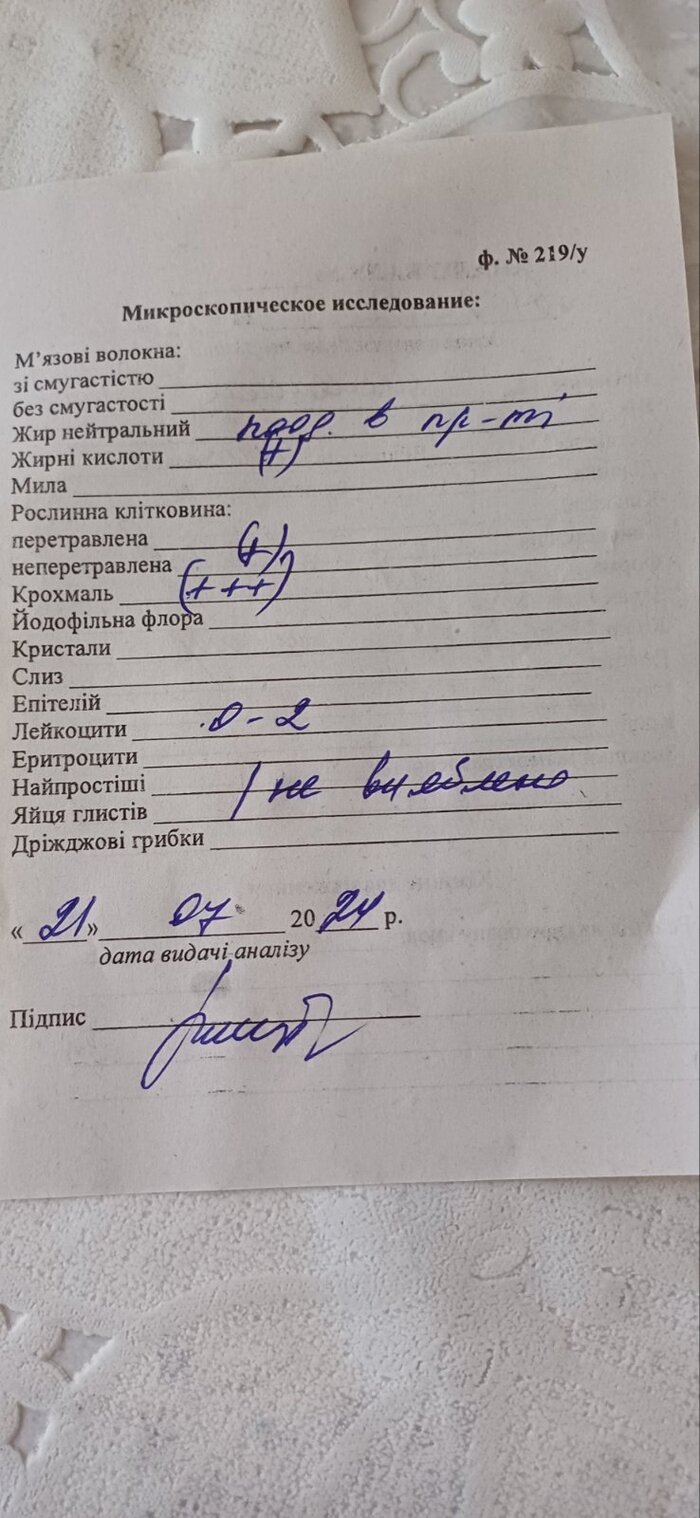 ф. № 219/у
Микроскопическое исследование:
М’язові волокна:
зі смугастістю
без смугастості
Жир нейтральний в пр-ті
Жирні кислоти (+)
Мила
Рослинна клітковина:
перетравлена (+)
неперетравлена
Крохмаль (+++)
Йодофільна флора
Кристали
Слиз
Епітелій
Лейкоцити 0-2
Еритроцити
Найпростіші не виявлено
Яйця глистів
Дріжджові грибки
«21» 07 2024 р.
дата видачі аналізу
Підпис